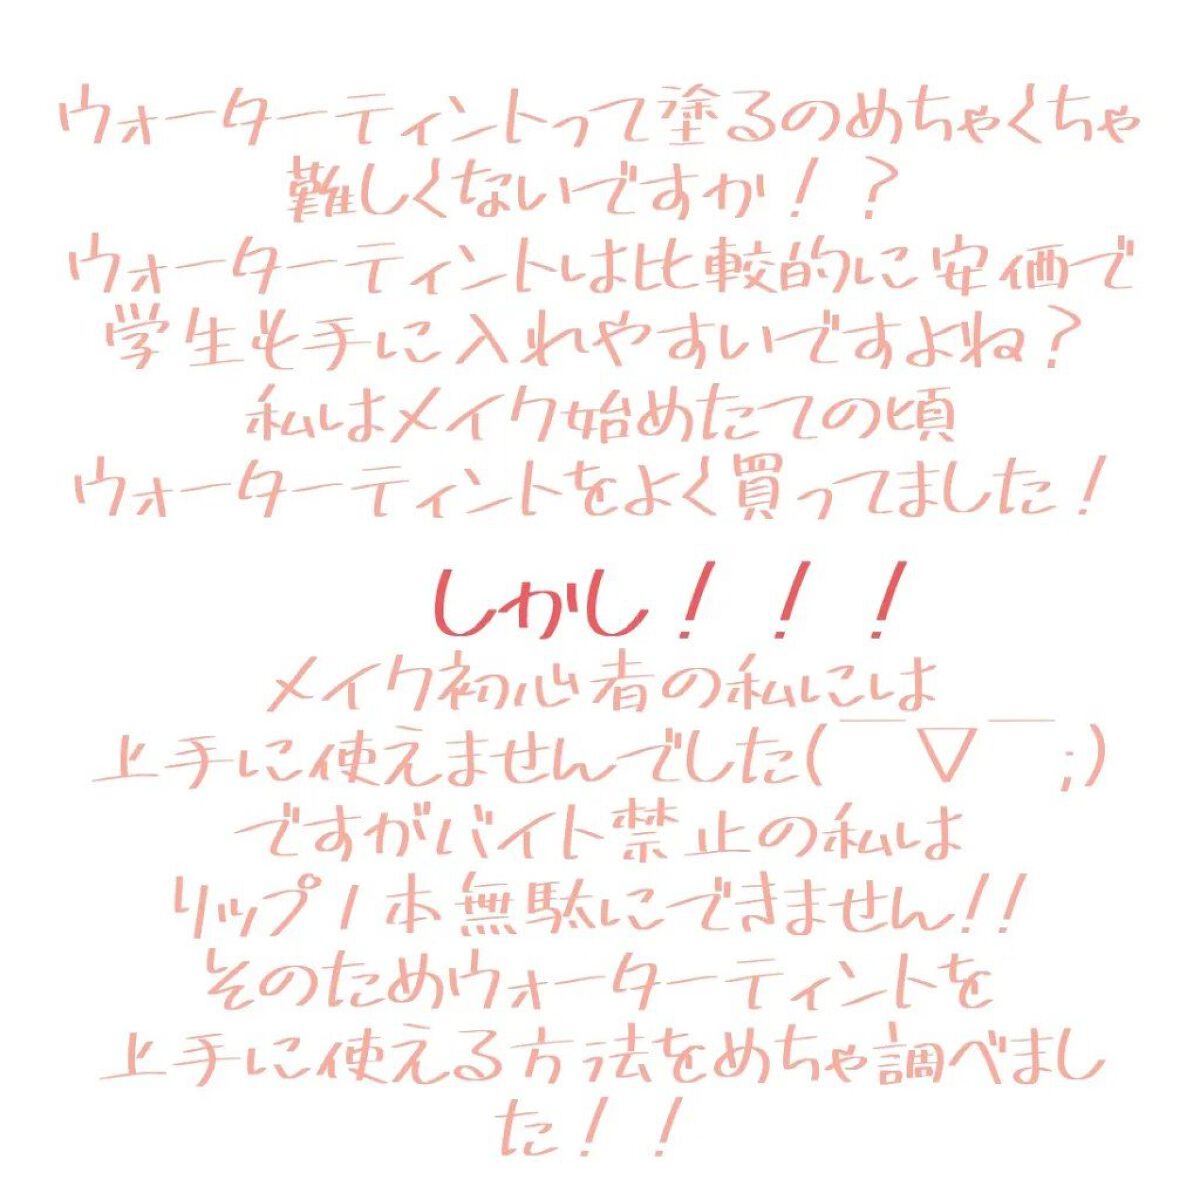 ウォーターティントって塗るのめちゃくちゃ
難しくないですか！？
ウォーターティントは比較的に安価で
学生も手に入れやすいですよね？
私はメイク始めたての頃
ウォーターティントをよく買ってました！
しかし！！！
メイク初心者の私には
上手に使えませんでした(￣▽￣;)
ですがバイト禁止の私は
リップ1本無駄にできません!!
そのためウォーターティントを
上手に使える方法をめちゃ調べまし
た！！